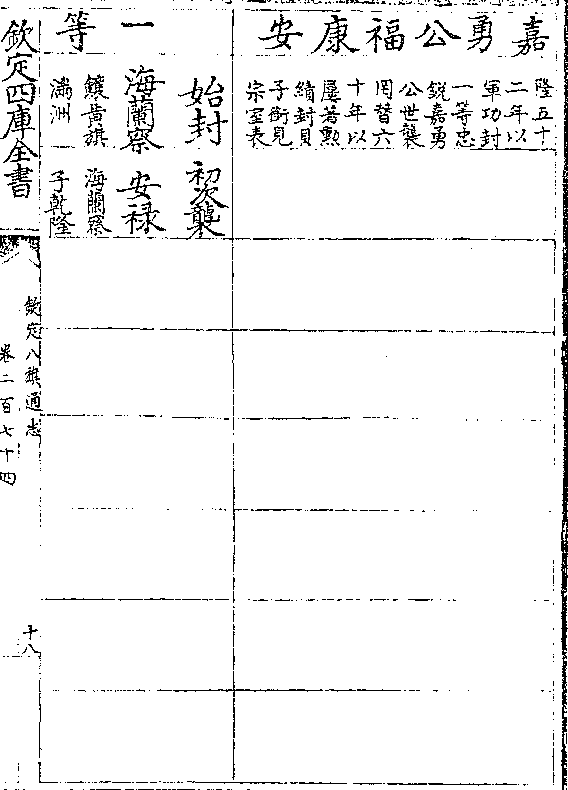 嘉勇公福康安
隆五十
二年以
軍功封
一等忠
鋭嘉勇
公世襲
罔替六
十年以
屢著勲
績封貝
子銜見
宗室表
一等
始封
海蘭察
鑲黄旗
滿洲
初次襲
安禄
海蘭察
子乾隆
欽定四庫全書
欽定八旗通志
卷二百七十四
十八